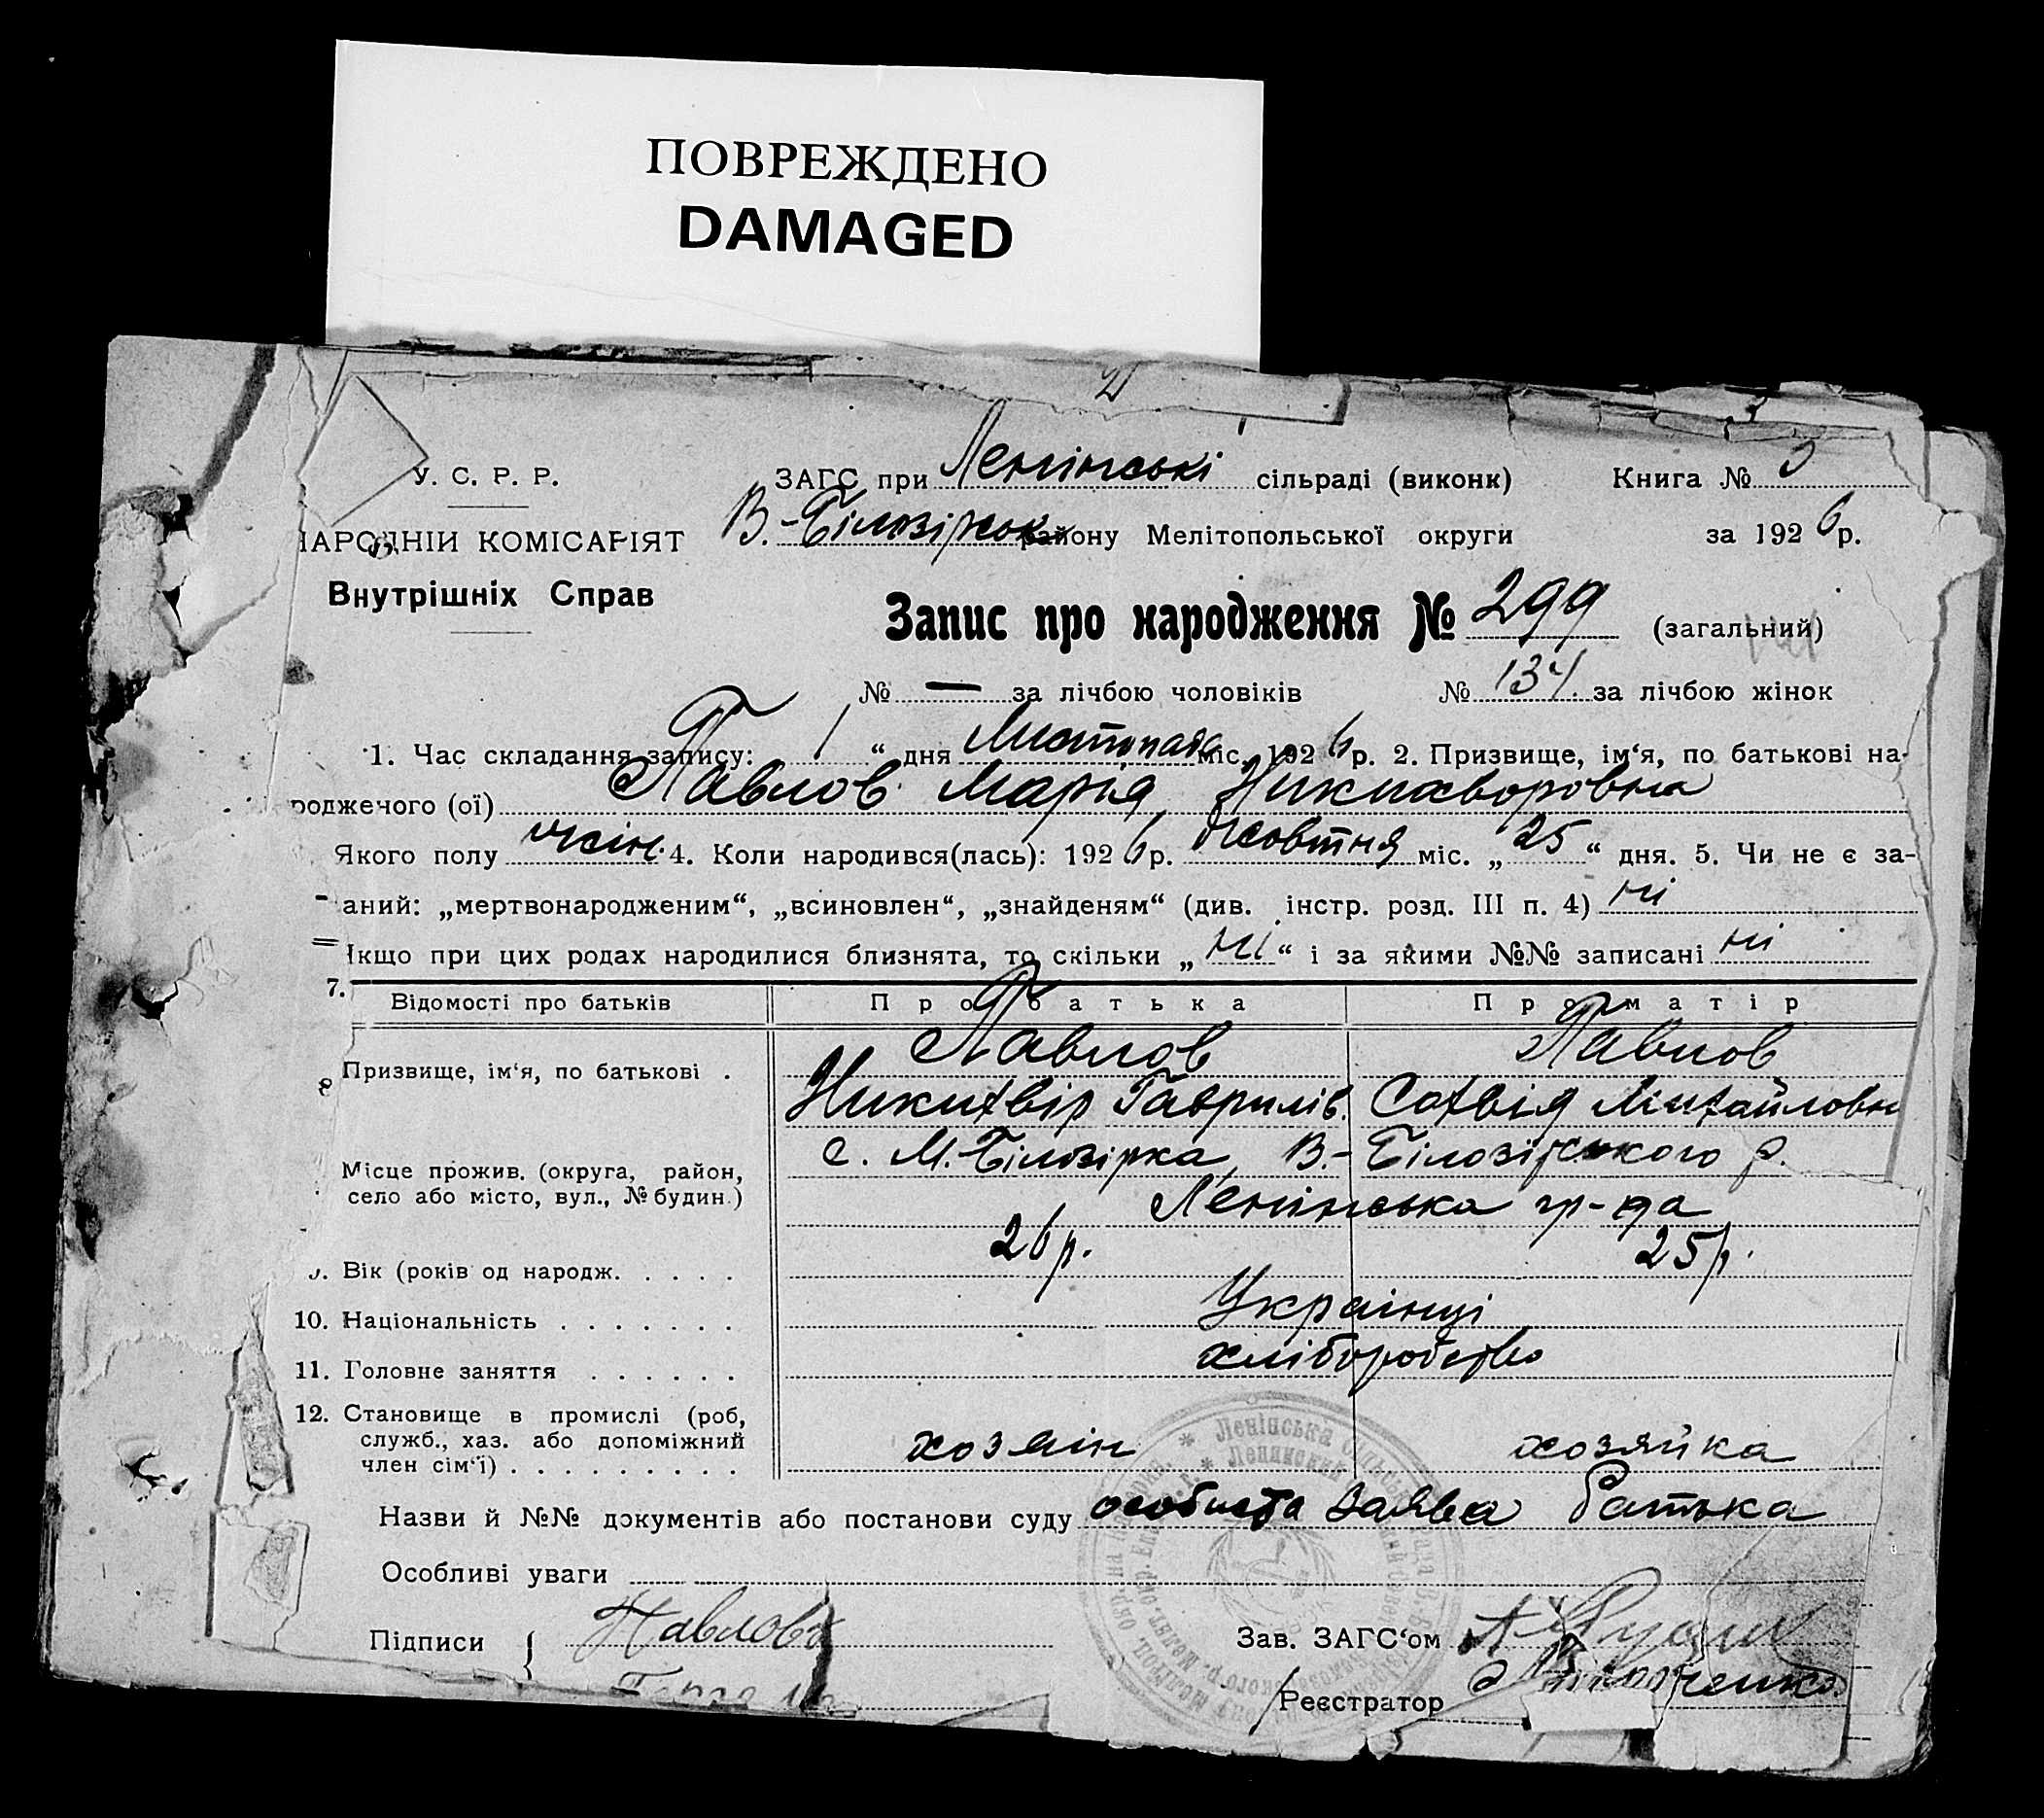 ПОВРЕЖДЕНО
DAMAGED
У. С. Р. Р.
ЗАГС при Ленінські сільраді (виконк) Книга №
АРОДНІЙ КОМІСАРІЯТ
В.-Білозірськ району Мелітопольської округи за 1926 р.
Внутрішніх Справ
Запис про народження № 299 (загальний)
№ — за лічбою чоловіків № 134 за лічбою жінок
1. Час складання запису: 1 “ дня Листопада міс. 1926 р. 2. Призвище, ім‘я, по батькові на-
родженого (ої) Павлов Марія Никихворовна
Якого полу жін. 4. Коли народився(лась): 1926 р. жовтня міс. „ 25 “ дня. 5. Чи не є за-
аний: „мертвонародженим“, „всиновлен“, „знайденям“ (див. інстр. розд. III п. 4) ні
кщо при цих родах народилися близнята, то скільки „ ні “ і за якими №№ записані ні
7. Відомості про батьків Про батька Про матір
8 Призвище, ім‘я, по батькові . Павлов Павлов
Никихвір Гаврилів. Сохвія Михайловн
Місце прожив. (округа, район, село або місто, вул., № будин.) с. М.-Білозірка, В.-Білозірського р.
Ленінська
. Вік (років од народж. . . . . 26 р. 25 р.
10. Національність . . . . . . . Українці
11. Головне заняття . . . . . . хліборобство
12. Становище в промислі (роб,
служб., хаз. або допоміжний
член сім‘ї) . . . . . . . . . хозяін хозяйка
Назви й №№ документів або постанови суду особиста заява батька
Особливі уваги
Підписи { Павлов
Зав. ЗАГС‘ом
Реєстратор